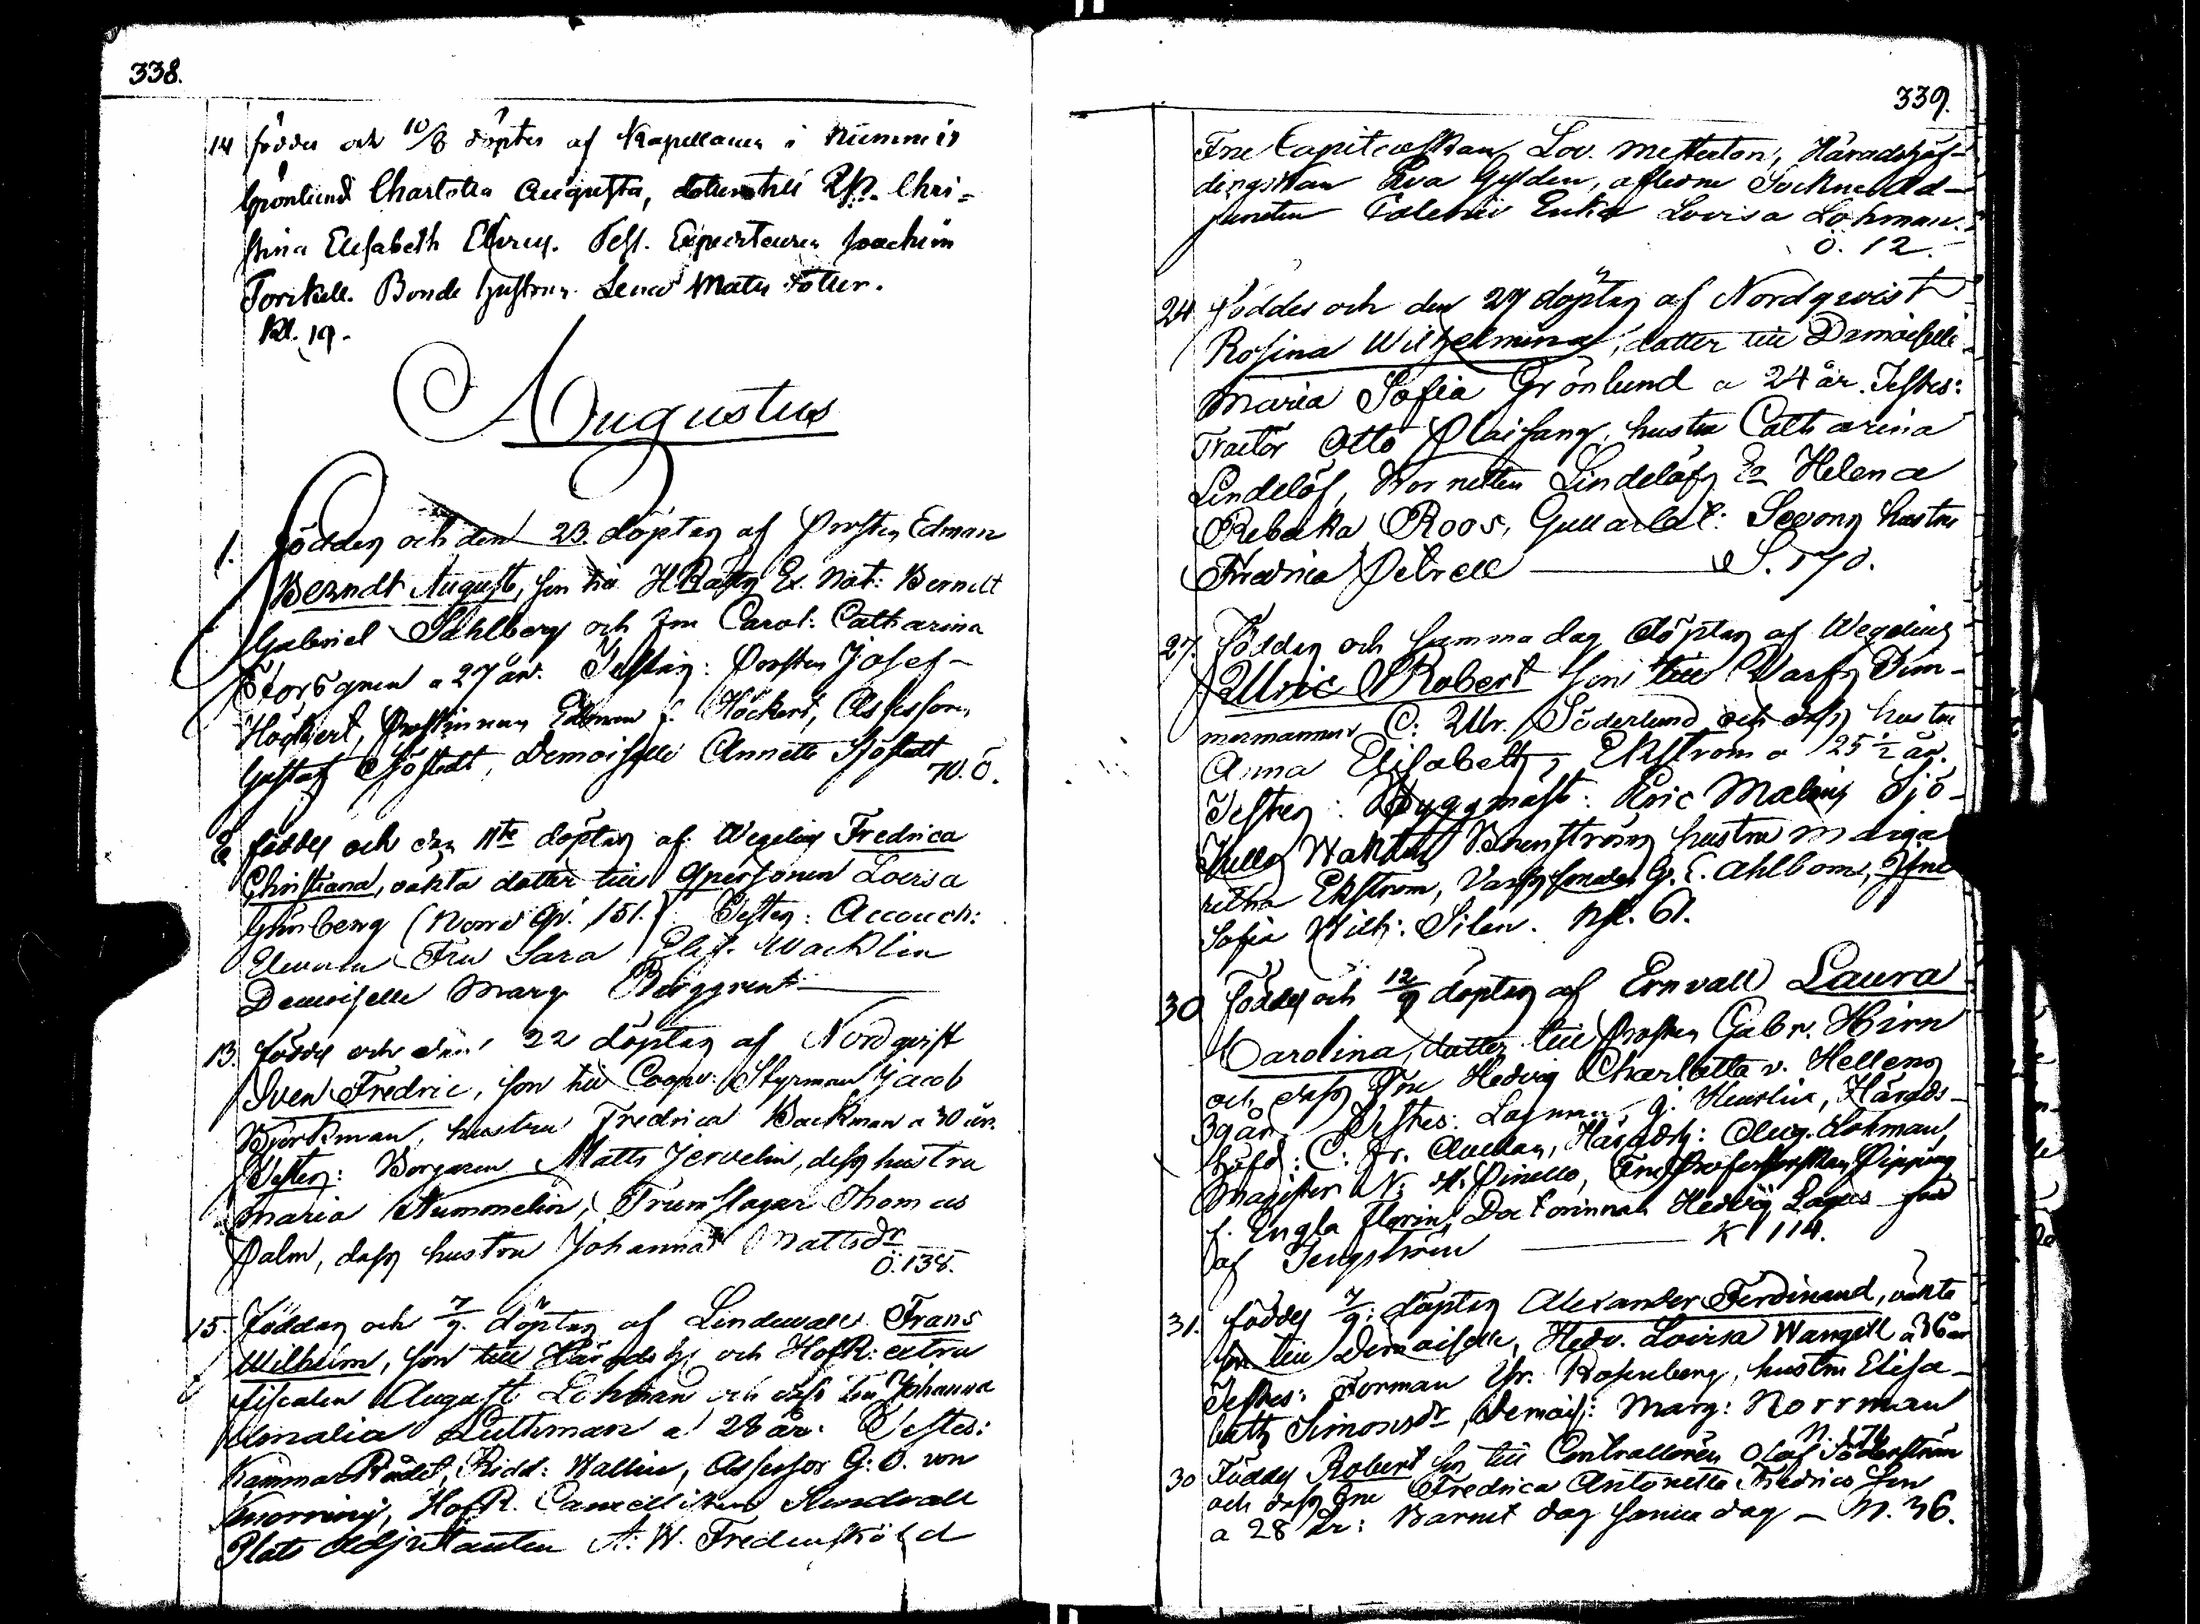 338.
14 föddes och 10/8 döptes af Kapellanen i Nummis
Grönlund Charlotta Augusta, dotter till Chri=
stina Elisabeth Test. Expediteuren Joachim
Torckell. Bonde hustrun Lena Mats dotter.
Kl. 19.
Augustus
1. föddes och den 23 döptes af Prosten Edman
Berndt August, son till H.Rätts Ex. Not: Berndt
Gabriel Sahlberg och Fru Carol: Catharina
a 27 år. Testes: Prosten Josef
Höckert, Prostinnan Edman f. Höckert, Assessorn
Gustaf Sjöstedt, Demoiselle Annette Sjöstedt
70. Ö.
föddes och den 11te döptes af Wegelius Fredrica
Christiana, oäkta dotter till Qpersonen Lovisa
Grönberg (Norra Qv. 151.) Testes: Accouch:
Elevern Fru Sara Elis. Wacklin
Demoiselle Marg Berggrent
13. föddes och den 22 döptes af Nordqvist
Sven Fredric, son till Coopv: Styrman Jacob
Björkman, hustru Fredrica Backman a 30 år.
Testes: Borgaren Matts Jervelin, dess hustru
Maria Nummelin, Trumslagar Thomas
Palm, dess hustru Johanna Mattsdr
Ö. 138.
15. föddes och 7/9 döptes af Lindewall Frans
Wilhelm, son till Häradsh. och HofR: extra
fiscalen August Lohman och dess Fru Johanna
Amalia Luthman a 28 år. Testes:
KammarRådet, Ridd: Wallin, Assessor G. O. von
Knorring, HofR. Cancellisten Sundvall
Plats Adjutanten A. W. Fredenskiöld
339.
Fru Capitenskan Lov. Mesterton, Häradshöf-
dingskan Eva Gyldén, aflidne Sockne Ad-
juncten Enka Lovisa Lohman.
Ö. 12.
24 föddes och den 27 döptes af Nordqvist
Rosina Wilhelmina, dotter till Demoiselle
Maria Sofia Grönlund a 24 år. Testes:
Traktör Otto Plaisang, hustru Catharina
Lindelöf, Kornetten Lindelöf, Helena
Rebecka Roos, Hustru
Fredrica Petrell S. 170.
27. föddes och samma dag döptes af Wegelius
Ulric Robert son till Varfs Tim-
mermannen C: Ulr. Söderlund och dess hustru
Anna Elisabeth Ekström a 25 1/2 år.
Testes: Byggmäst: Eric Malens Sjö-
hustru Marga
retha Ekström, Varfs G. E. Ahlbom, Jfru
Sofia Wilh: Silen. Nk. 61.
30 föddes och 12/9 döptes af Ernvall Laura
Carolina, dotter till Prosten Gabr. Hirn
och dess Fru Hedvig Charlotta v. Hellens
39 år. Testes: Lagman J. Heurlin, Härads-
höfd: C: Fr. Häradsh: Aug. Lohman,
Magister N: A. Pinello, Fru Professorskan Pipping
f. Engla Florin, Doctorinnan Hedvig Lagus född
af Tengström K 114.
31. föddes 7/9 döptes Alexander Ferdinand, oäkta
son till Demoiselle, Hedv. Lovisa Wangell a 36 år
Testes: Forman Rosenberg, hustru Elisa-
beth Simonsdr, Demois: Marg: Norrman
N. 171
30 Föddes Robert son till Controlleuren Olof Söderström
och dess Fru Fredrica Antonetta
a 28 år: Barnet dog samma dag - N. 36.